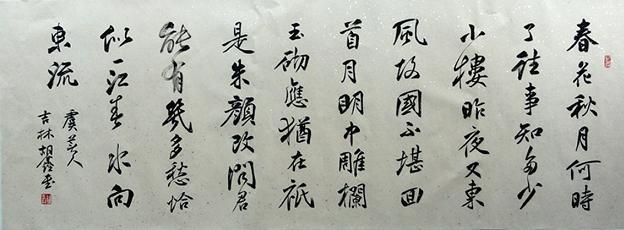 春花秋月何時
了往事知多少
小樓昨夜又東
風故國不堪回
首月明中雕欄
玉砌應猶在祇
是朱顏改問君
能有幾多愁恰
似一江春水向
東流
虞美人
吉林胡鑫書